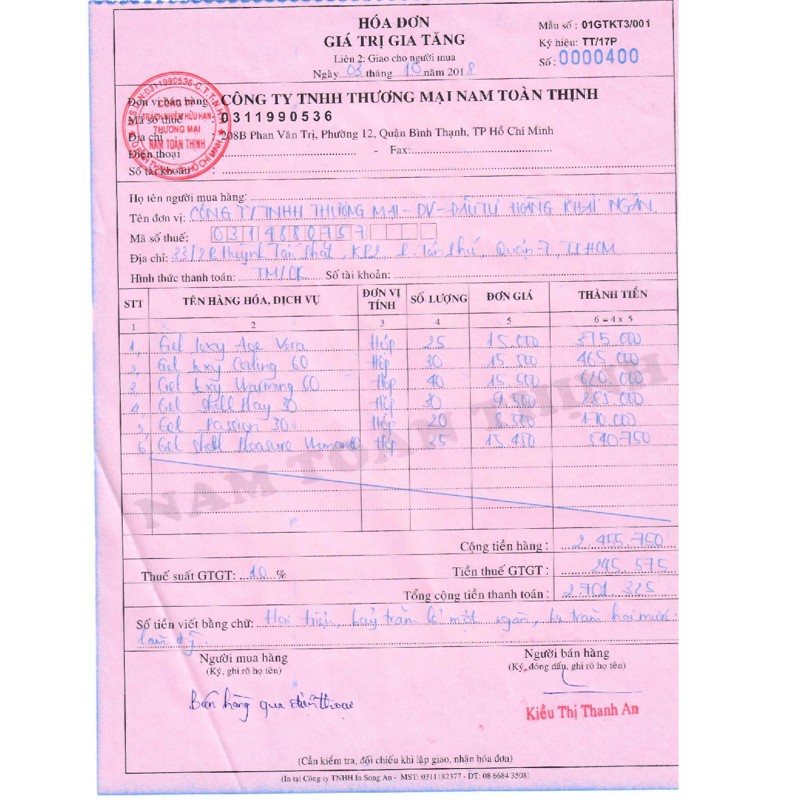 HÓA ĐƠN
GIÁ TRỊ GIA TĂNG
Liên 2: Giao cho người mua
Ngày 03 tháng 10 năm 2018
Mẫu số : 01GTKT3/001
Ký hiệu: TT/17P
Số : 0000400
Đơn vị bán hàng CÔNG TY TNHH THƯƠNG MẠI NAM TOÀN THỊNH
Mã số thuế : 0311990536
Địa chỉ : 208B Phan Văn Trị, Phường 12, Quận Bình Thạnh, TP Hồ Chí Minh
Điện thoại - Fax:
Số tài khoản:
CÔNG TY
TRÁCH NHIỆM HỮU HẠN
THƯƠNG MẠI
NAM TOÀN THỊNH
Họ tên người mua hàng:
Tên đơn vị: CÔNG TY TNHH THƯƠNG MẠI - DV - ĐẦU TƯ HOÀNG KHẢI NGÂN
Mã số thuế: 0314880757
Địa chỉ: Huỳnh Tấn Phát, KP2, P. Tân Phú, Quận 7, TP.HCM
Hình thức thanh toán: TM/CK Số tài khoản:
STT TÊN HÀNG HÓA, DỊCH VỤ ĐƠN VỊ TÍNH SỐ LƯỢNG ĐƠN GIÁ THÀNH TIỀN
1 2 3 4 5 6 = 4 x 5
1, Gel Aloe Vera Hộp 25 15.000 375.000
2, Gel Cooling 60 Hộp 30 15.500 465.000
3, Gel Warming 60 Hộp 40 15.500 620.000
4, Gel Play 30 Hộp 30 9.500 285.000
5, Gel Passion 30 Hộp 20 8.500 170.000
6, Gel Pleasure Hộp 35 15.450 540.750
NAM TOÀN THỊNH
Cộng tiền hàng : 2.455.750
Thuế suất GTGT: 10 % Tiền thuế GTGT : 245.575
Tổng cộng tiền thanh toán : 2.701.325
Số tiền viết bằng chữ: Hai triệu, bảy trăm lẻ một ngàn, ba trăm hai mươi
lăm đ.
Người mua hàng
(Ký, ghi rõ họ tên)
Bán hàng qua điện thoại
Người bán hàng
(Ký, đóng dấu, ghi rõ họ tên)
Kiều Thị Thanh An
(Cần kiểm tra, đối chiếu khi lập giao, nhận hóa đơn)
(In tại Công ty TNHH In Song An - MST: 0311182377 - ĐT: 08 6684 3508)